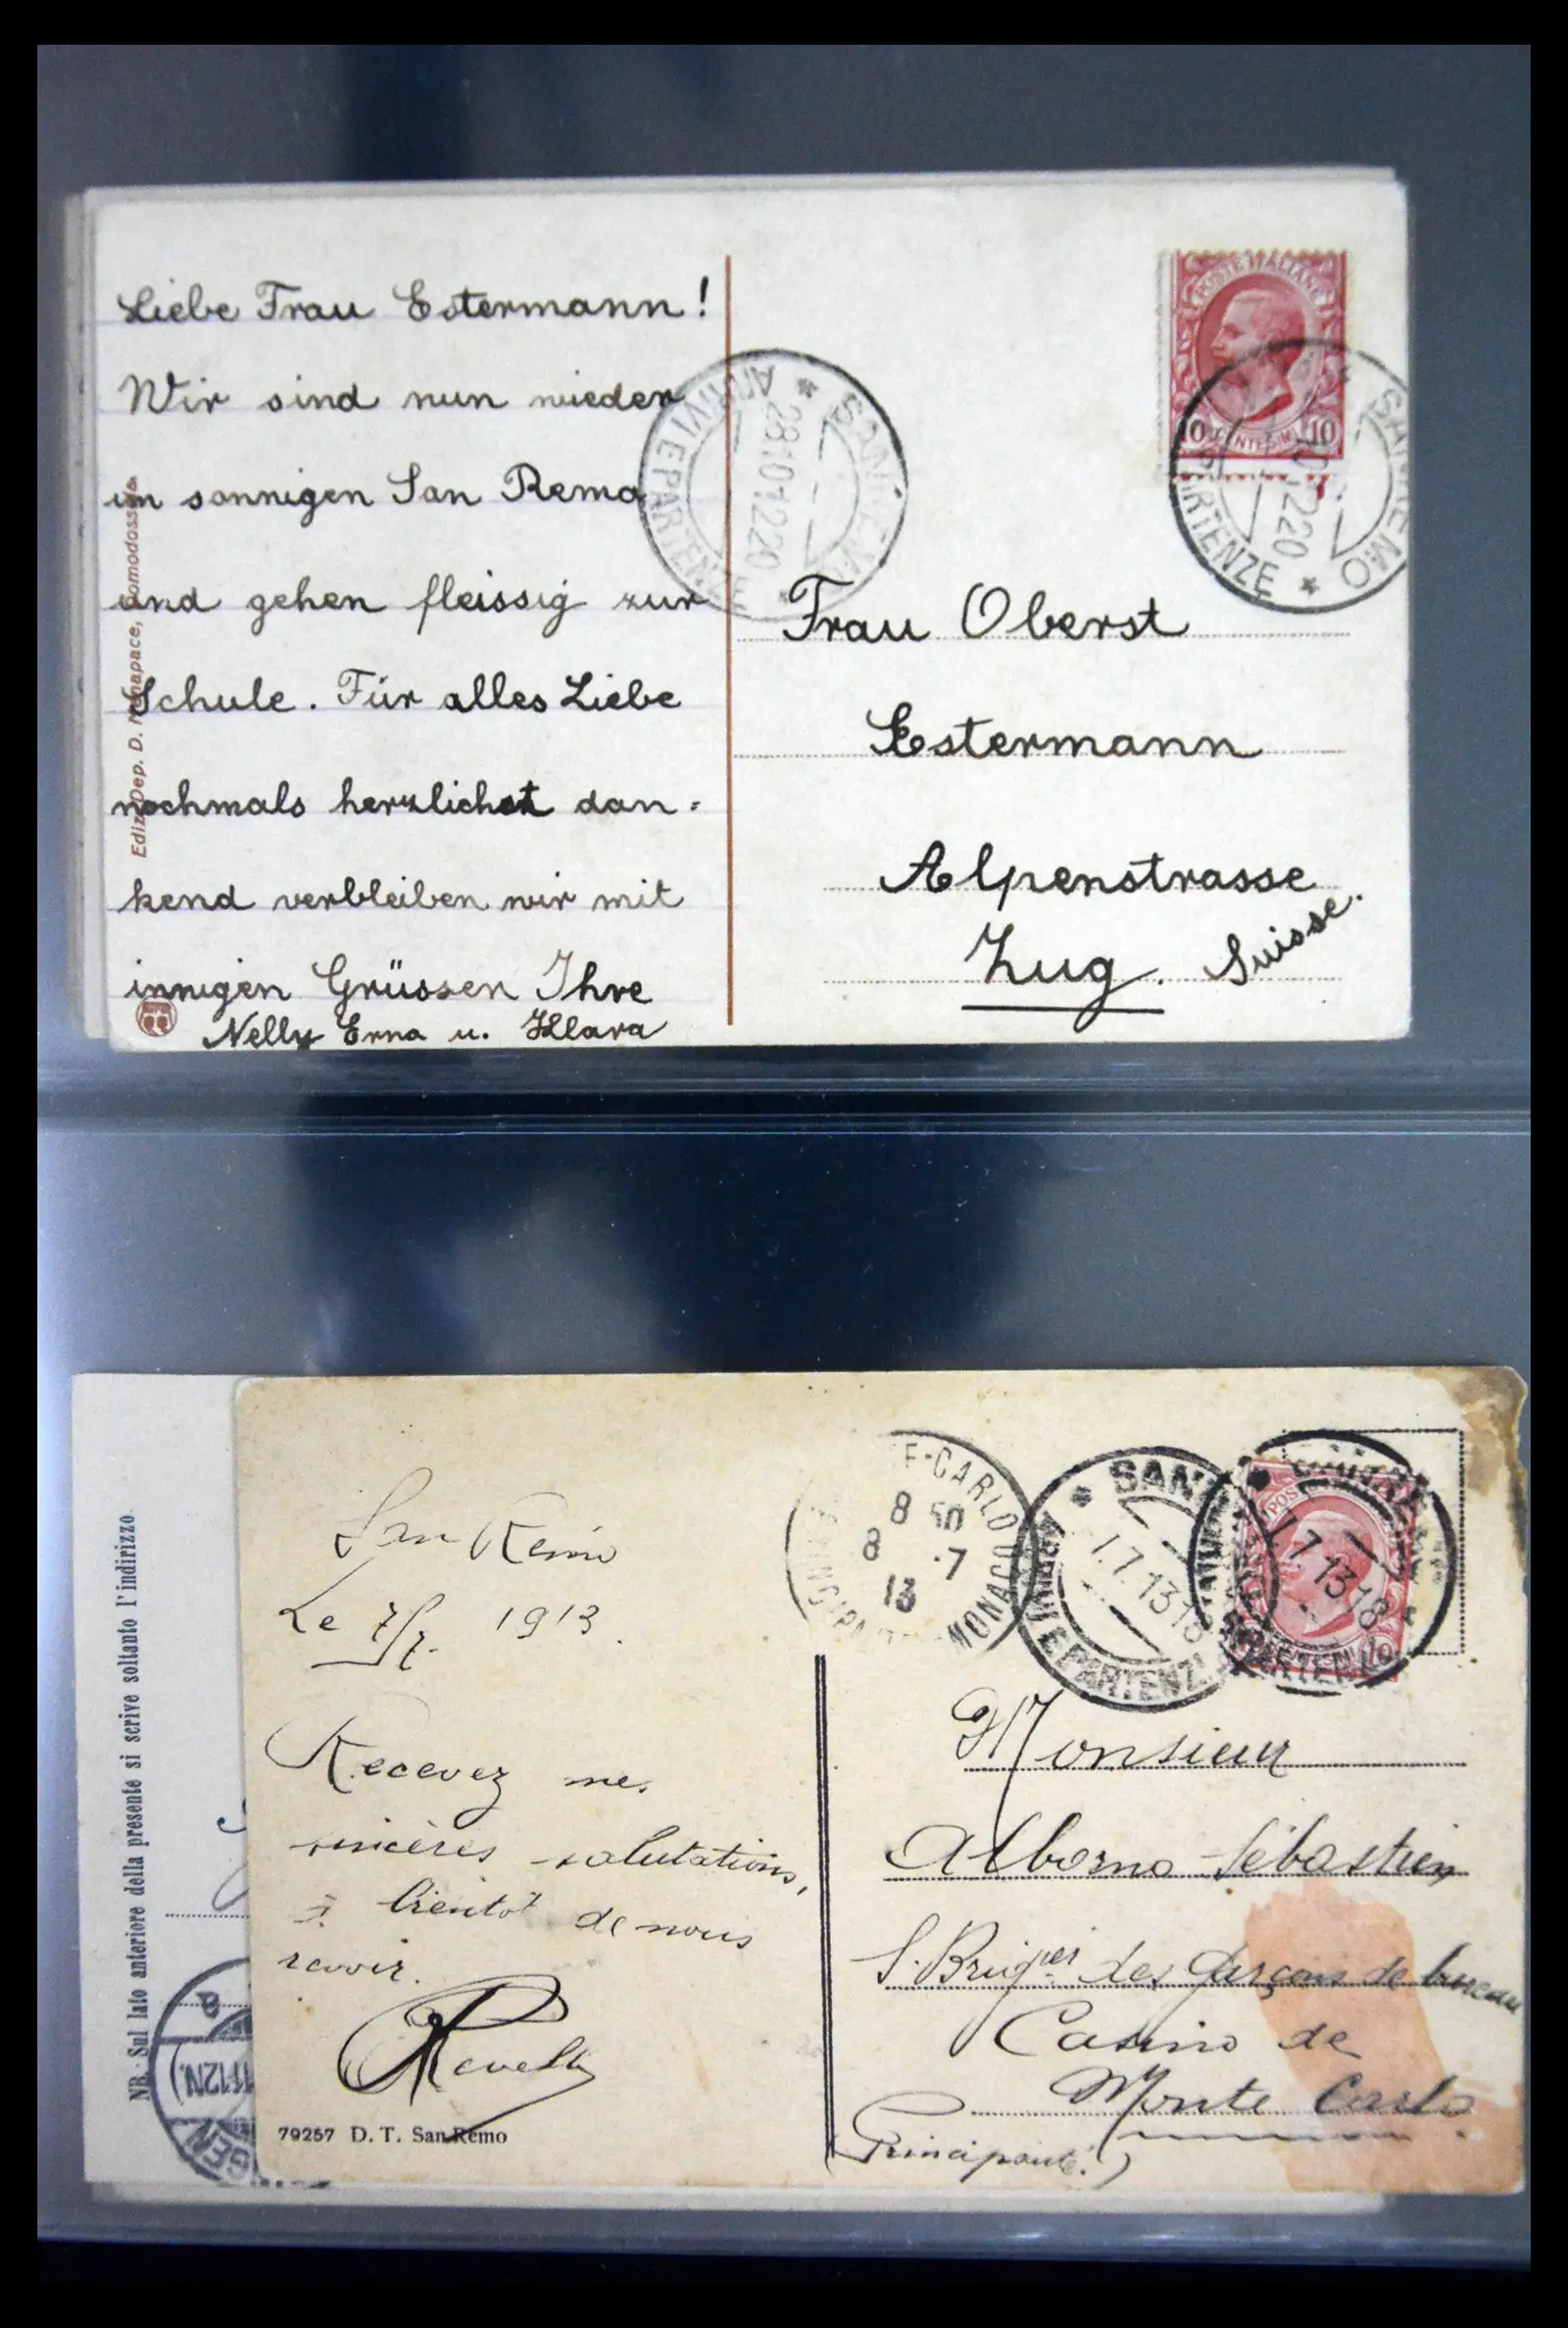 Liebe Frau Estermann!
Wir sind nun wieder
im sonnigen San Remo
und gehen fleissig zur
Schule. Für alles Liebe
nochmals herzlichst dan-
kend verbleiben wir mit
innigen Grüssen Ihre
Nelly Erna u. Klara
Ediz. Dep. D. Menapace, Domodossola
SAN REMO
ARRIVI E PARTENZE
28.10.12.20
POSTE ITALIANE
10 CENTESIMI 10
SAN REMO
PARTENZE
12.20
Frau Oberst
Estermann
Alpenstrasse
Zug. Suisse.
NB. Sul lato anteriore della presente si scrive soltanto l'indirizzo
11-12N.
San Remo
Le 7/7. 1913.
Recevez mes
sincères salutations,
à bientôt de nous
revoir.
Revelli
79257 D. T. San Remo
E-CARLO
8 50
8 .7
13
MONACO
SAN
ARRIVI E PARTENZE
7.7.13.18
7.7.13.18
POS
10
Monsieur
Alborno Sébastien
S. Brig.ier des garçons de bureau
Casino de
Monte Carlo
(Principauté.)